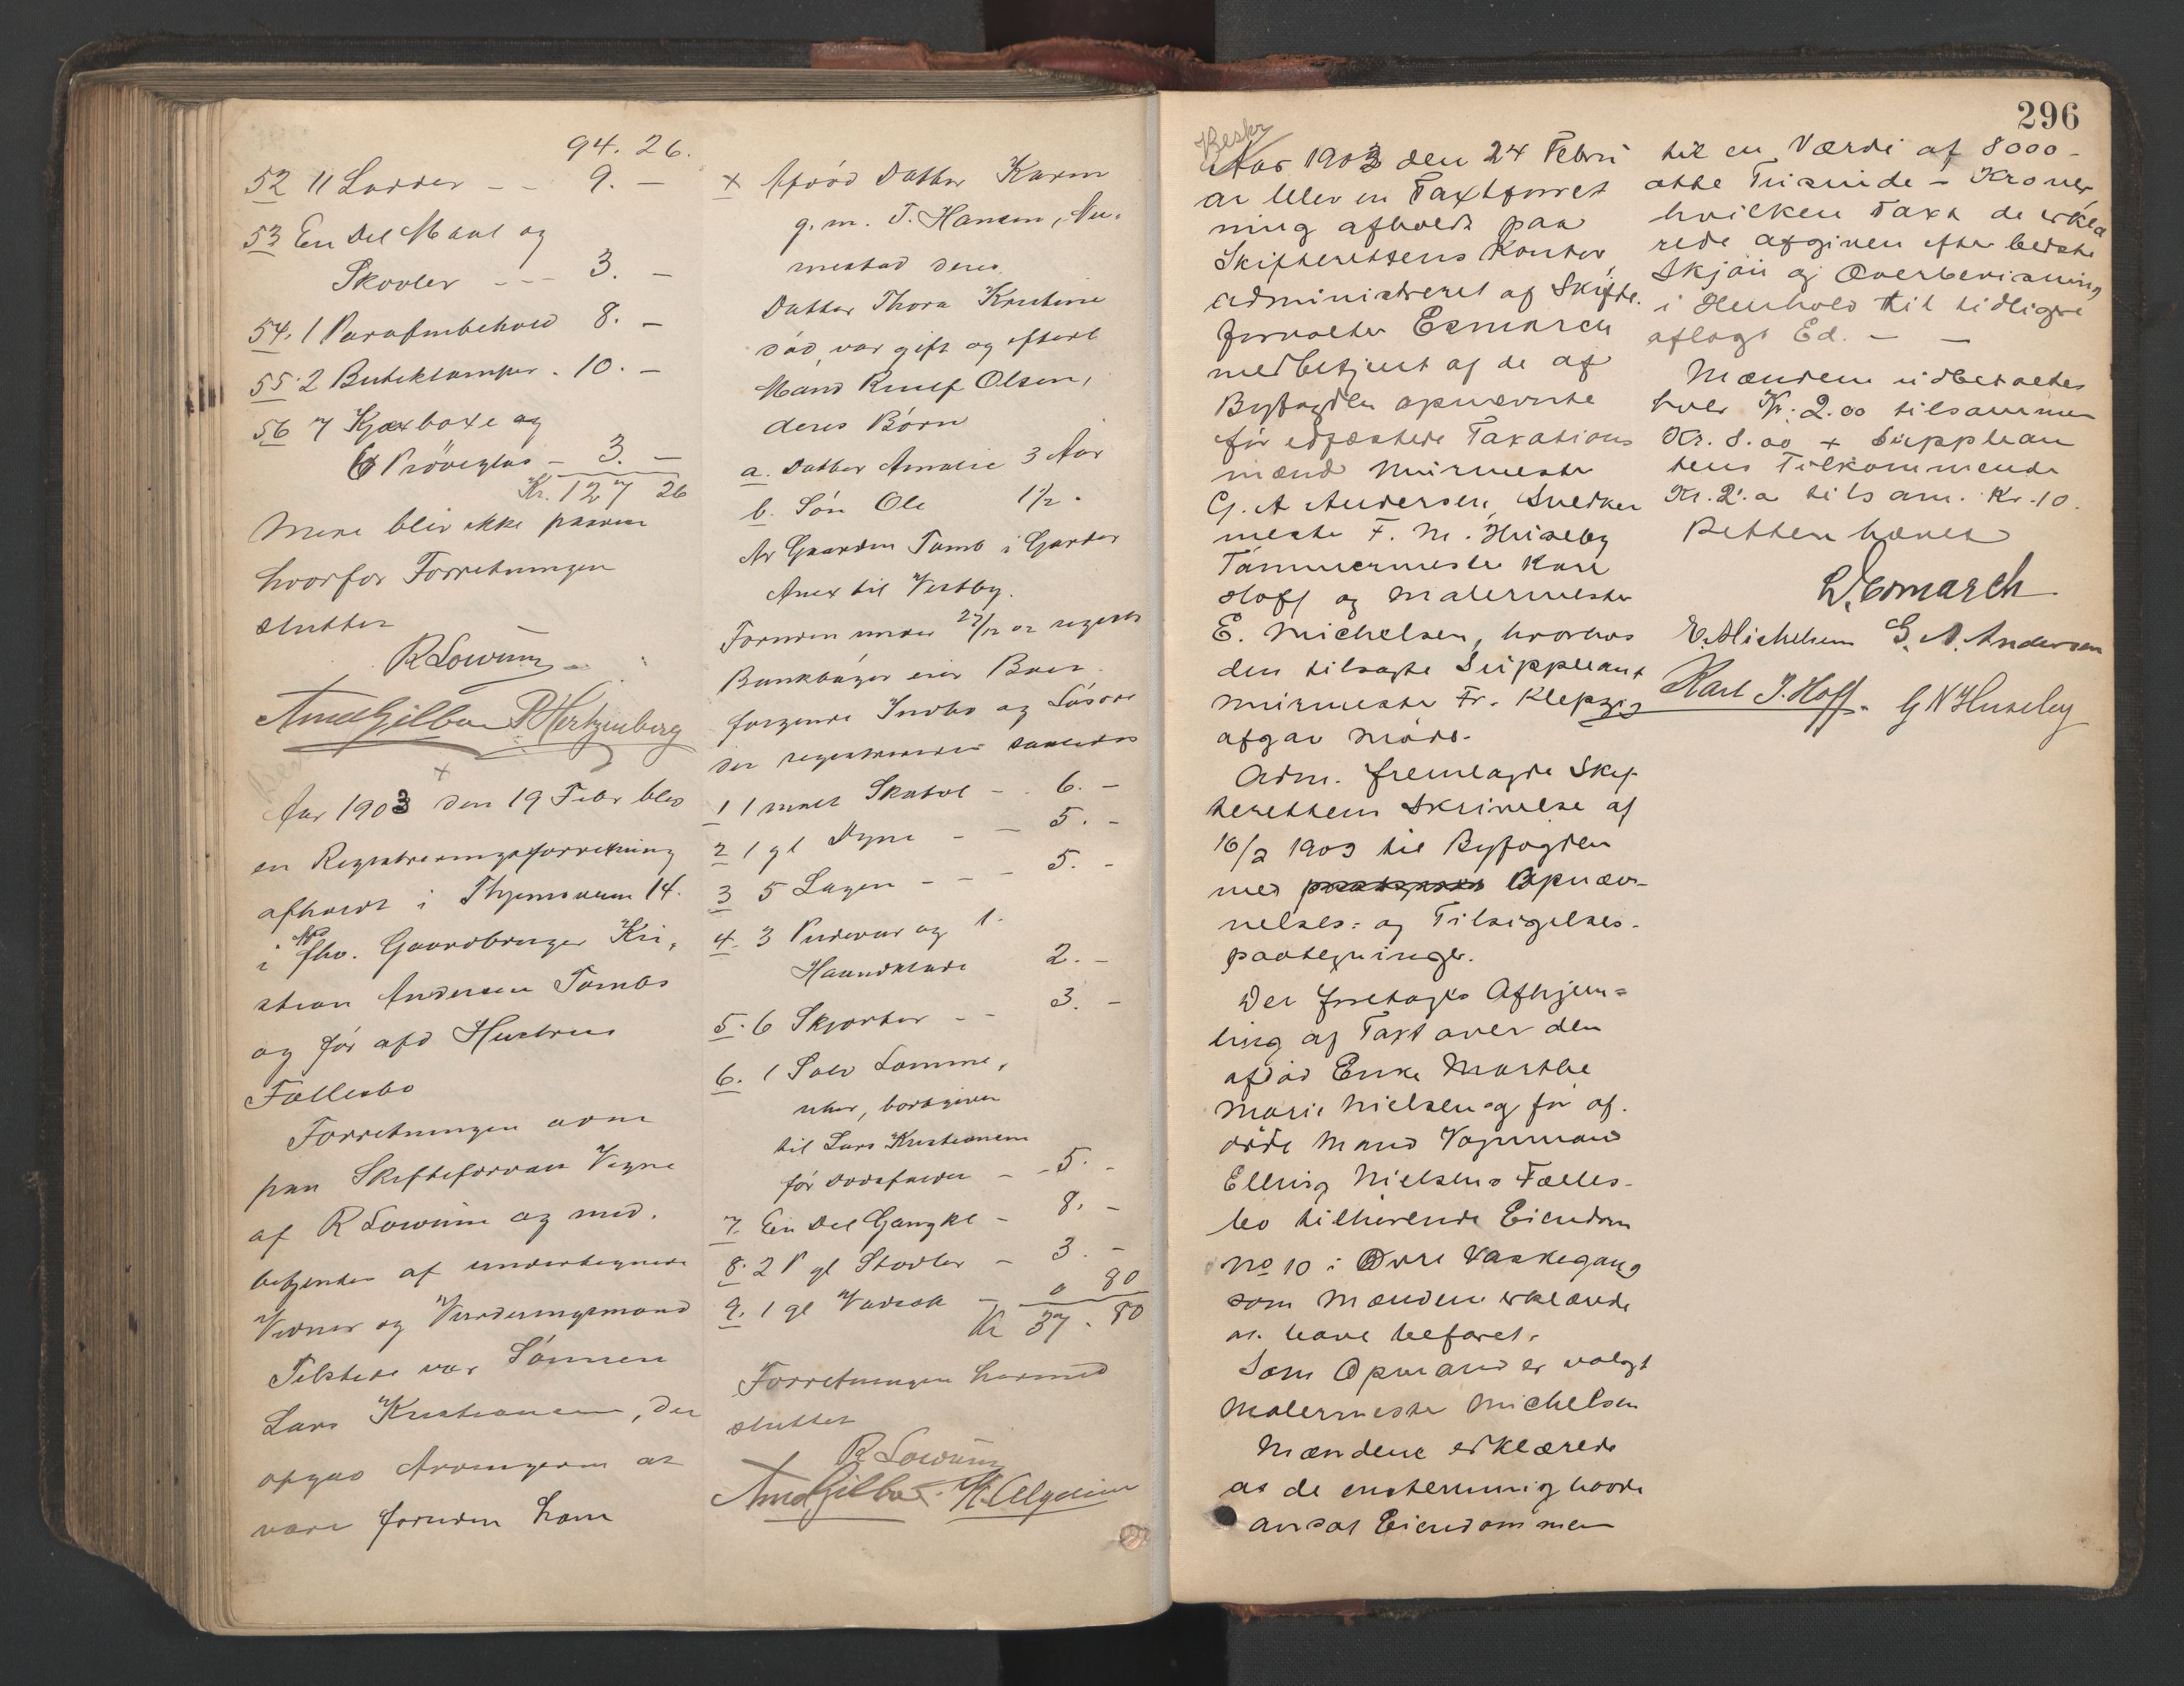 94. 26.
52 11 Lodder - - 9. -
53 En Del Maal og
Skovler - - - 3. -
54. 1 Parafinbehold 8. -
55. 2 Butiklamper - 10. -
56 7 Kjæxboxe og
6 Prøveglas - 3. -
Kr. 127 26
Mere blev ikke paavist
hvorfor Forretningen
sluttet
R Lowum
Arne Gilboe P. Hertzenberg
Aar 1903 den 19 Febr blev
en Registreringsforretning
afholdt i Thjemsveien 14.
i Afd. fhv. Gaardbruger Kri-
stian Andersen Tombs
og før afd Hustrus
Fællesbo
Forretningen adm
paa Skifteforvalt Vegne
af R Lowum og med-
betjentes af undertegnede
Vidner og Vurderingsmænd
Tilstede var Sønnen
Lars Kristiansen, der
opgav Arvingerne at
være foruden ham
x Afdød Datter Karen
g. m. T. Hansen,
deres
Datter Thora Kristine
død, var gift og efterl
Mand Knut Olsen,
deres Børn
a. Datter Amalie 3 Aar
b. Søn Ole 1 1/2 -
Af Gaarden Tomb i Garder
Anex til Vestby.
Foruden under 27/12 02 registr
Bankbøger eier Boet
følgende Indbo og Løsøre
der registreredes saaledes
1 1 malt Skatol - - 6. -
2 1 gl Dyne - - 5. -
3 5 Lagen - - - 5. -
4. 3 Pudevar og 1
Haandklæde 2. -
5. 6 Skjorter - - 3. -
6. 1 Sølv Lomme-
uhr, bortgiven
til Lars Kristiansen
før Dødsfaldet - - 5. -
7. En Del Gangkl - 8. -
8. 2 P gl Støvler - 3. -
9. 1 gl Vadsæk - 0 80
Kr 37. 80
Forretningen hermed
sluttet
R Lowum
Arne Gilboe.
296
Beskr
Aar 1903 den 24 Febru
ar blev en Taxtforret
ning afholdt paa
Skifterettens Kontor
administreret af Skifte-
forvalter Esmarch
medbetjent af de af
Byfogden opnævnte
før edfæstede Taxations
mænd Murmester
G. A Andersen, Snedker
mester F. N. Huseby
Tømmermester Karl
Hoff og Malermester
E. Michelsen, hvorhos
den tilsagte Suppleant
Murmester Fr. Klepzig
afgav Møde.
Adm. fremlagde Skif-
terettens Skrivelse af
16/2 1903 til Byfogden
med Opnæv-
nelses- og Tilsigelses-
paategninger.
Der foretoges Afhjem-
ling af Taxt over den
afdød Enke Marthe
Marie Nielsen og før af-
døde Mand Vognmand
Elling Nielsens Fælles-
bo tilhørende Eiendom
No 10 i Øvre Vaskegang
som Mændene erklærede
at have befaret.
Som Opmand er valgt
Malermester Michelsen
Mændene erklærede
at de enstemmig havde
ansat Eiendommen
til en Værdi af 8000 -
otte Tusinde - Kroner,
hvilken Taxt de erklæ
rede afgiven efter bedste
Skjøn og Overbevisning
i Henhold til tidligere
aflagt Ed. - -
Mændene udbetaltes
hver Kr. 2.00 tilsammen
Kr. 8.00 + Supplean
tens Tilkommende
Kr. 2.00 tilsam. Kr. 10.
Retten hævet
L. Esmarch
E. Michelsen G. A. Andersen
Karl J. Hoff. G N Huseby